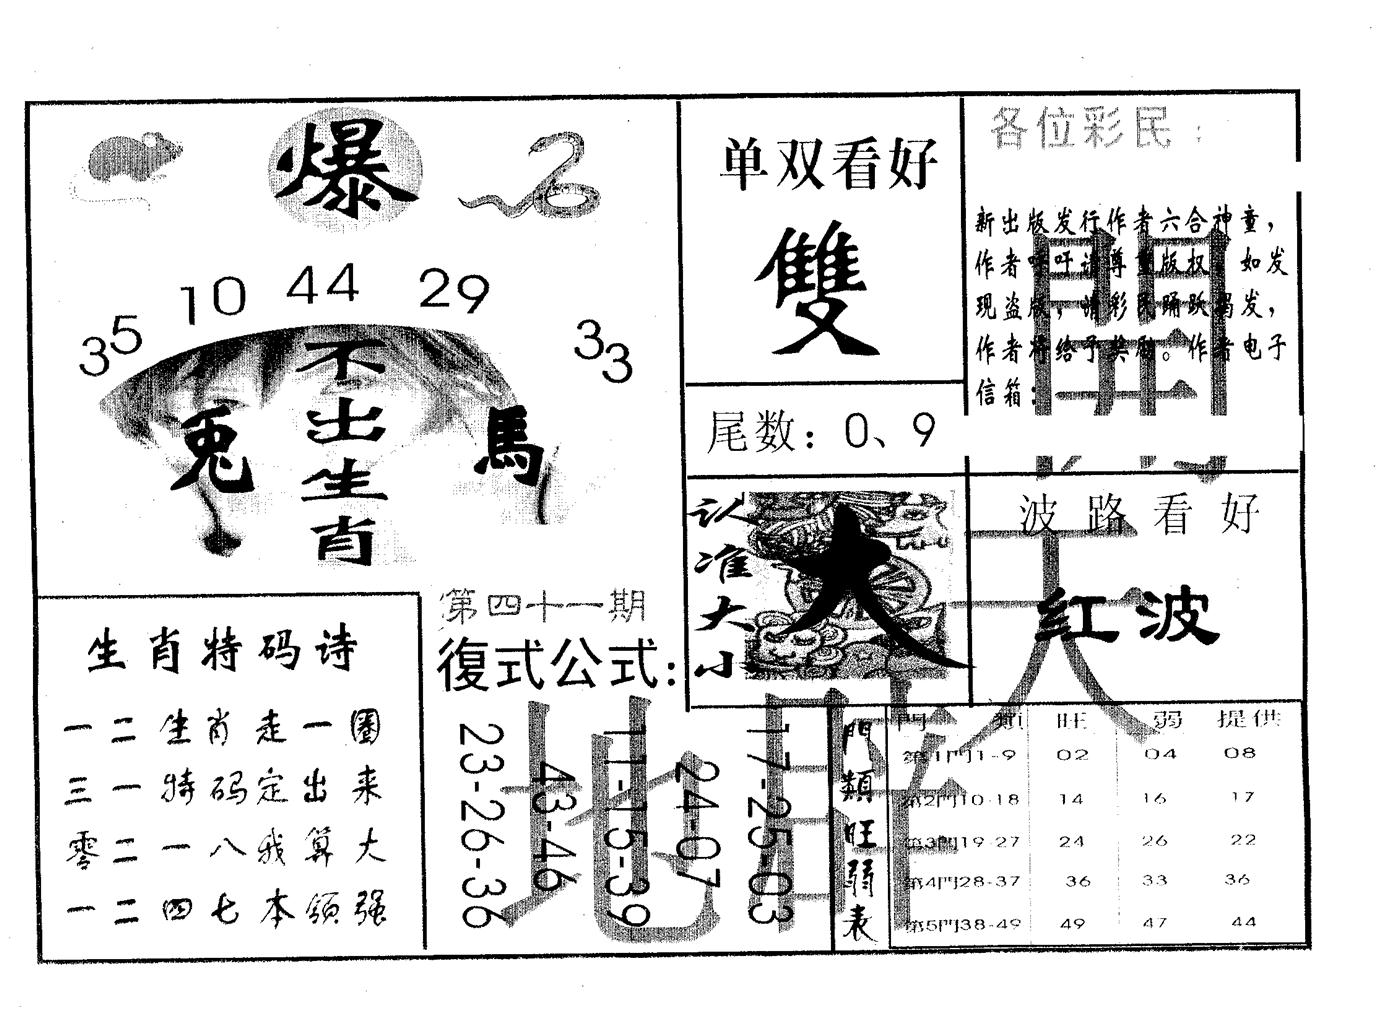 爆
35 10 44 29 33
不出生肖
兎 馬
单双看好
雙
尾数：0、9
各位彩民：
新出版发行作者六合神童，
作者呼吁请尊重版权，如发
现盗版，请彩民踊跃揭发，
作者将给予奖励。作者电子
信箱：
認准大小
大
波路看好
红波
生肖特码诗
一二生肖走一圈
三一特码定出来
零二一八我算大
一二四七本领强
第四十一期
復式公式：
23-26-36
43-46
11-15-39
24-07
17-25-03
門類旺弱表
門 類 旺 弱 提供
第1門1-9 02 04 08
第2門10-18 14 16 17
第3門19-27 24 26 22
第4門28-37 36 33 36
第5門38-49 49 47 44